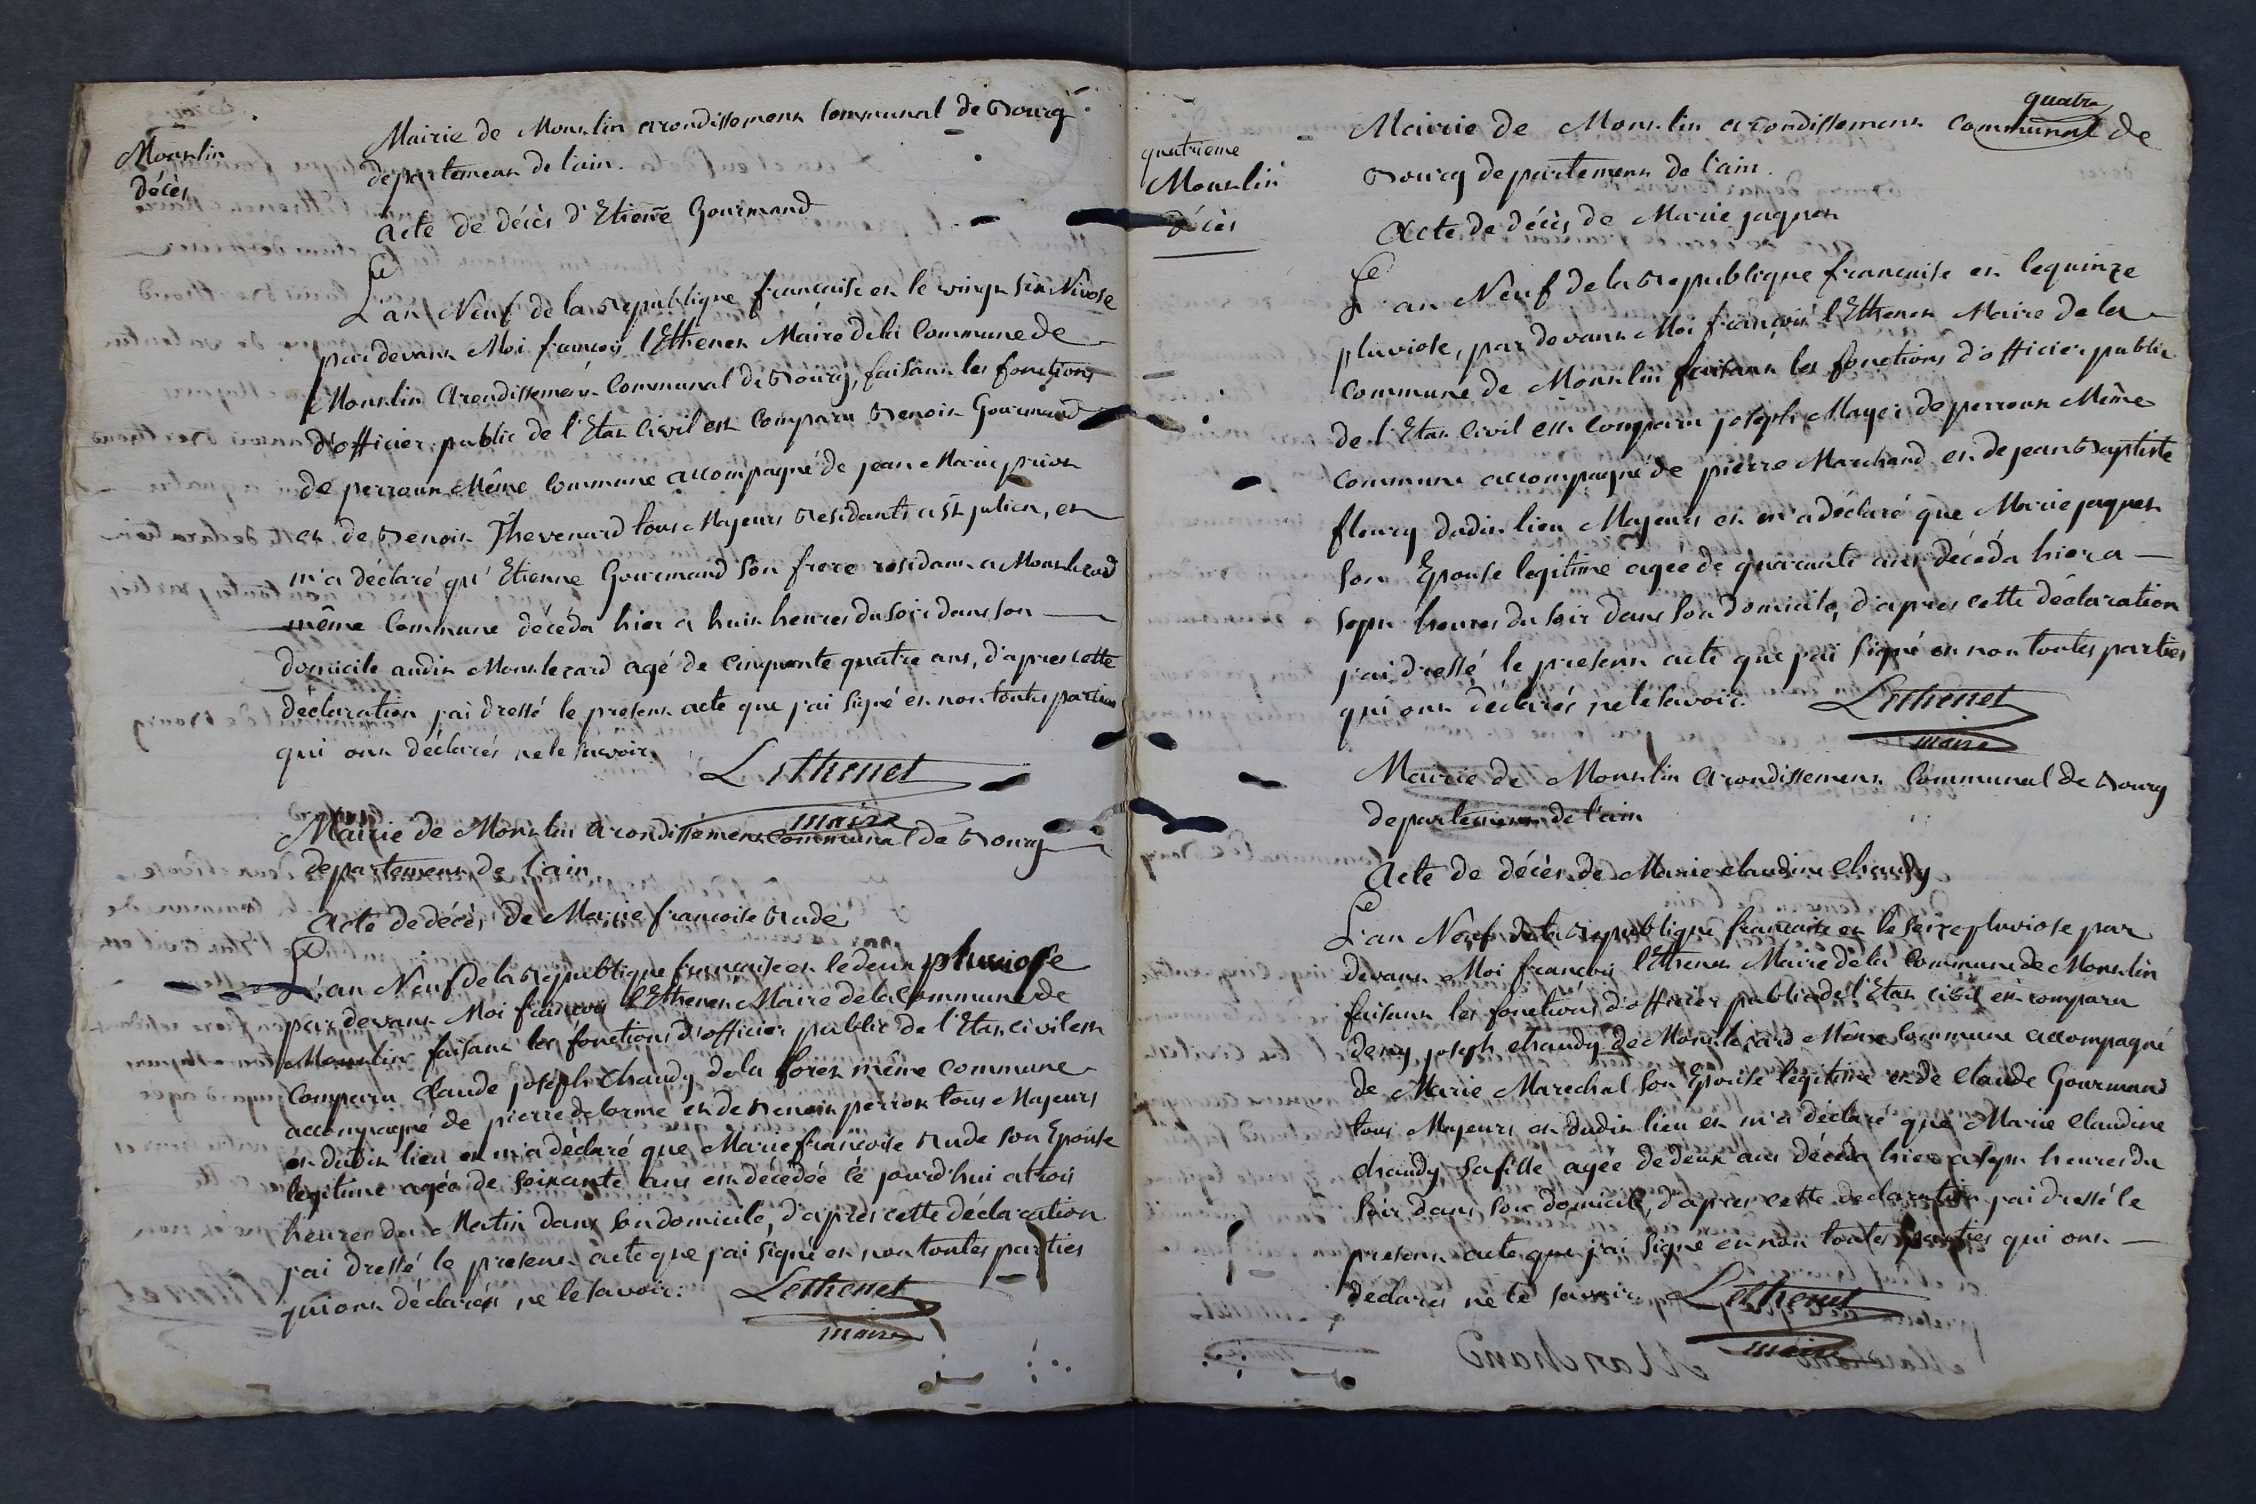 Montlin
décès
Mairie de Montlin arondissement communal de Bourg
departement de l'ain.
Acte de décès d'Etienne Gourmand
L'an Neuf de la Republique francaise et le vingt six Nivose
par devant Moi françois l'Ethenet Maire de la Commune de
Montlin Arondissement Communal de Bourg, faisant les fonctions
d'officier public de l'Etat Civil est comparu Benoit Gourmand
de perroux Même commune accompagné de jean Marie privat
et de Benoit Thevenard tous Majeurs Residants a St julien, et
m'a déclaré qu'Etienne Gourmand son frere residant a Montlezard
même Commune décéda hier a huit heures du soir dans son
domicile audit Montlezard agé de cinquante quatre ans, d'apres cette
déclaration j'ai dressé le present acte que j'ai signé et non toutes parties
qui ont déclarés ne le savoir.
Lethenet
maire
Mairie de Montlin arondissement communal de Bourg
departement de l'ain
Acte de décès de Marie francoise Rude
L'an Neuf de la Republique francaise et le deux pluviose
par devant Moi françois l'Ethenet Maire de la Commune de
Montlin faisant les fonctions d'officier public de l'Etat civil est
Comparu Claude joseph Chaudy de la foret même commune
accompagné de pierre delorme et de Benoit perron tous Majeurs
et dudit lieu et m'a déclaré que Marie francoise Rude son Epouse
legitime agée de soixante ans est décédée cé jourd'hui a trois
heures du Matin dans son domicile, d'apres cette déclaration
j'ai dressé le present acte que j'ai signé et non toutes parties
qui ont déclarés ne le savoir.
Lethenet
maire
quatre
quatrieme
Montlin
décès
Mairie de Montlin arondissement communal de
Bourg departement de l'ain.
Acte de décès de Marie jaquet
L'an Neuf de la Republique francaise et le quinze
pluviose, par devant Moi françois l'Ethenet Maire de la
commune de Montlin faisant les fonctions d'officier public
de l'Etat Civil est comparu joseph Mayer de perroux Même
commune accompagné de pierre Marchand et de jean Baptiste
fleury dudit lieu Majeurs et m'a déclaré que Marie jaquet
son Epouse legitime agée de quarante ans décéda hier a
sept heures du soir dans son domicile, d'apres cette déclaration
j'ai dressé le present acte que j'ai signé et non toutes parties
qui ont déclarés ne le savoir.
Lethenet
maire
Mairie de Montlin arondissement Communal de Bourg
departement de l'ain
Acte de décès de Marie claudine Chaudy
L'an Neuf de la Republique francaise et le seize pluviose par
devant Moi françois l'Ethenet Maire de la Commune de Montlin
faisant les fonctions d'officier public de l'Etat civil est comparu
joseph chaudy de Montlezard Même Commune accompagné
de Marie Marechal son Epouse legitime et de Claude Gourmand
tous Majeurs et dudit lieu et m'a déclaré que Marie claudine
chaudy sa fille agée de deux ans décéda hier a sept heures du
soir dans son domicile, d'apres cette declaration j'ai dressé le
present acte que j'ai signe et non toutes parties qui ont
declares ne le savoir.
Lethenet
maire